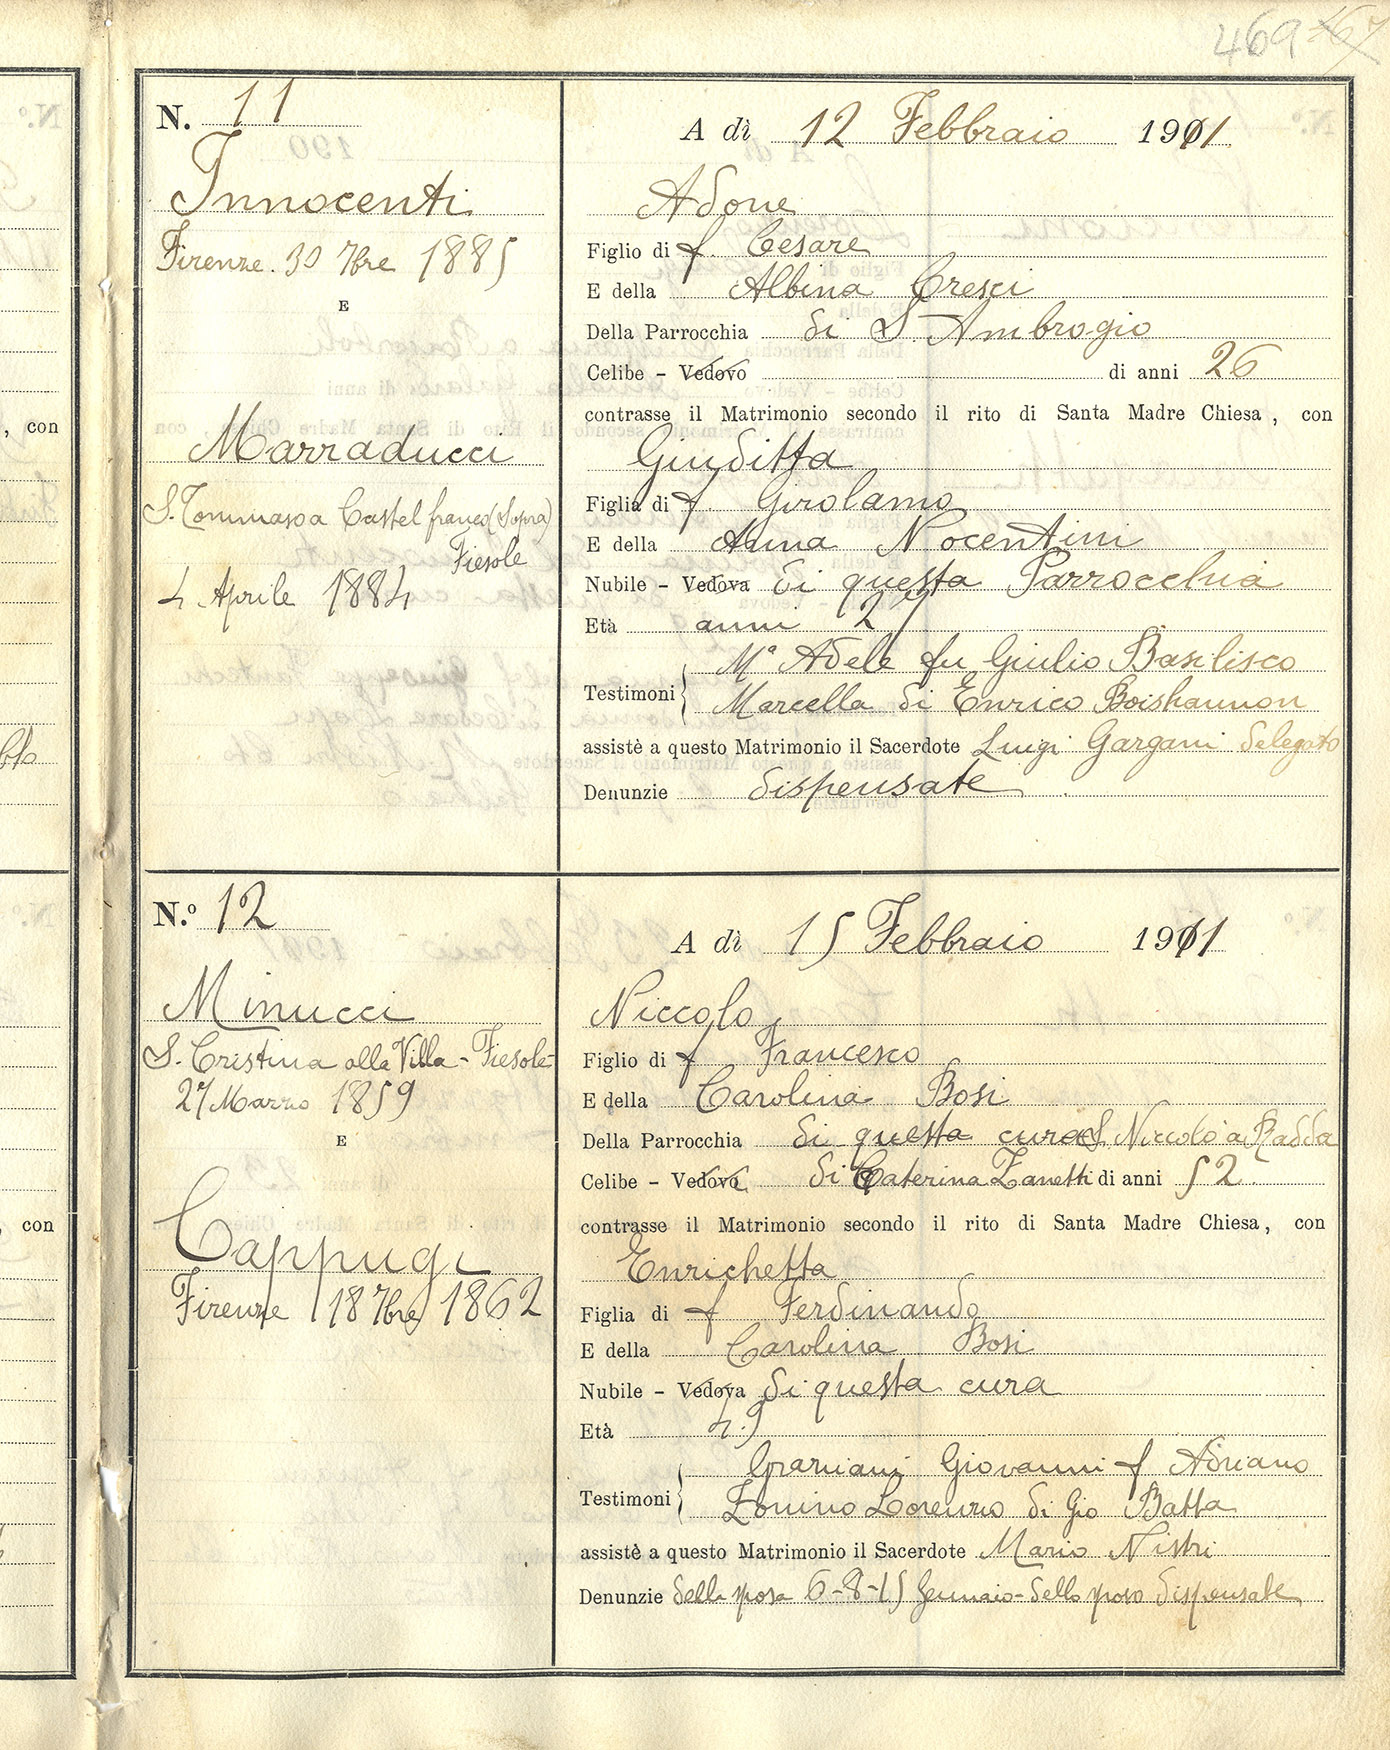 469
N. 11
Innocenti
Firenze. 30 7bre 1885
E
Marraducci
S. Tommaso a Castelfranco (Sopra)
Fiesole
4 Aprile 1884
A dì 12 Febbraio 1911
Adone
Figlio di f. Cesare
E della Albina Cresci
Della Parrocchia di S. Ambrogio
Celibe - Vedovo di anni 26
contrasse il Matrimonio secondo il rito di Santa Madre Chiesa, con
Giuditta
Figlia di f. Girolamo
E della Anna Nocentini
Nubile - Vedova di questa Parrocchia
Età anni 27
Testimoni Mª Adele fu Giulio Basilisco
Marcella di Enrico
assistè a questo Matrimonio il Sacerdote Luigi Gargani delegato
Denunzie dispensate
N.º 12
Minucci
S. Cristina alla Villa - Fiesole -
27 Marzo 1859
E
Cappugi
Firenze 18 7bre 1862
A dì 15 Febbraio 1911
Niccolo
Figlio di f Francesco
E della Carolina Bosi
Della Parrocchia di questa cura S. Niccolò a Radda
Celibe - Vedovo di Caterina Zanetti di anni 52
contrasse il Matrimonio secondo il rito di Santa Madre Chiesa, con
Enrichetta
Figlia di f Ferdinando
E della Carolina Bosi
Nubile - Vedova di questa cura
Età
Testimoni Graziani Giovanni f Adriano
Zonino Lorenzo di Gio Batta
assistè a questo Matrimonio il Sacerdote Mario Nistri
Denunzie della sposa 6-8-15 Gennaio - dello sposo dispensate
, con
, con